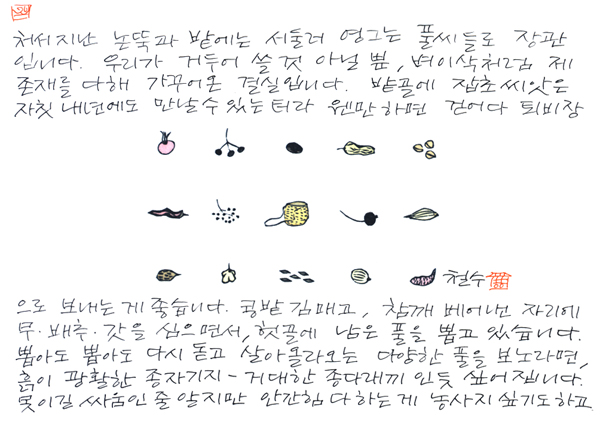 처서지난 논뚝과 밭에는 서둘러 영그는 풀씨들로 장관
입니다. 우리가 거두어 쓸 것 아닐 뿐, 벼이삭처럼 제
존재를 다해 가꾸어온 결실입니다. 밭골에 잡초씨앗은
자칫 내년에도 만날 수 있는 터라 웬만하면 걷어다 퇴비장
철수
으로 보내는게 좋습니다. 콩밭 김매고, 참깨 베어낸 자리에
무·배추·갓을 심으면서, 헛골에 남은 풀을 뽑고 있습니다.
뽑아도 뽑아도 다시 돋고 살아올라오는 다양한 풀을 보노라면,
흙이 광활한 종자기지-거대한 종다래끼인듯 싶어집니다.
못이길 싸움인 줄 알지만 안간힘 다하는 게 농사지 싶기도하고